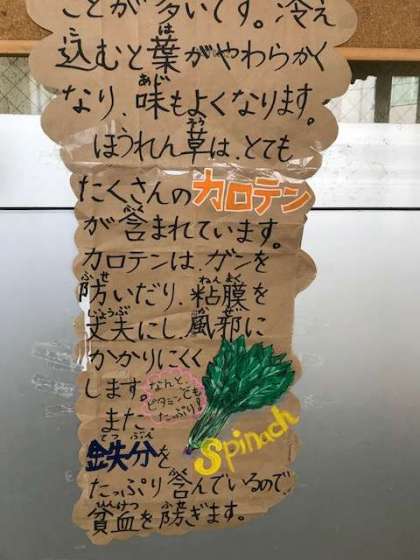 ことが多いです。冷え
込むと葉がやわらかく
なり、味もよくなります。
ほうれん草は、とても
たくさんのカロテン
が含まれています。
カロテンは、ガンを
防いだり、粘膜を
丈夫にし、風邪に
かかりにくく
します。
なんと、
ビタミンCも
たっぷり!
また、
鉄分を
Spinach
たっぷり含んでいるので、
貧血を防ぎます。